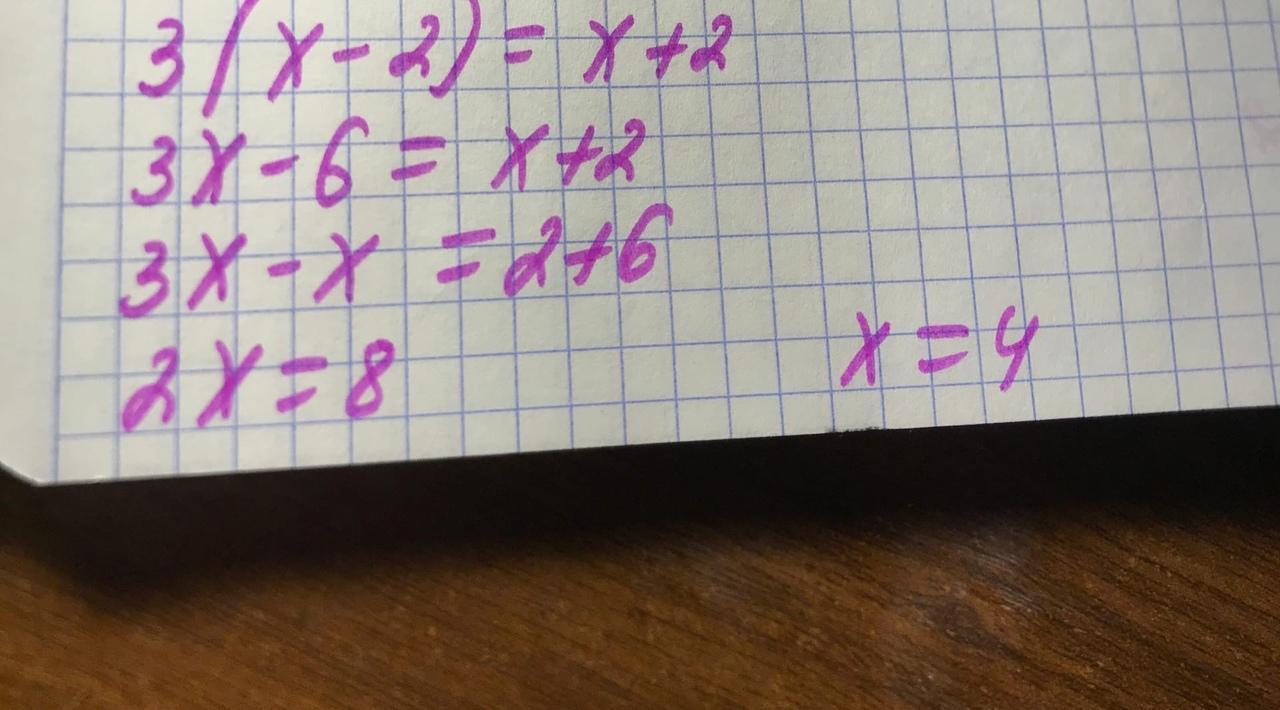 3(x-2)=x+2
3x-6=x+2
3x-x=2+6
2x=8 x=4